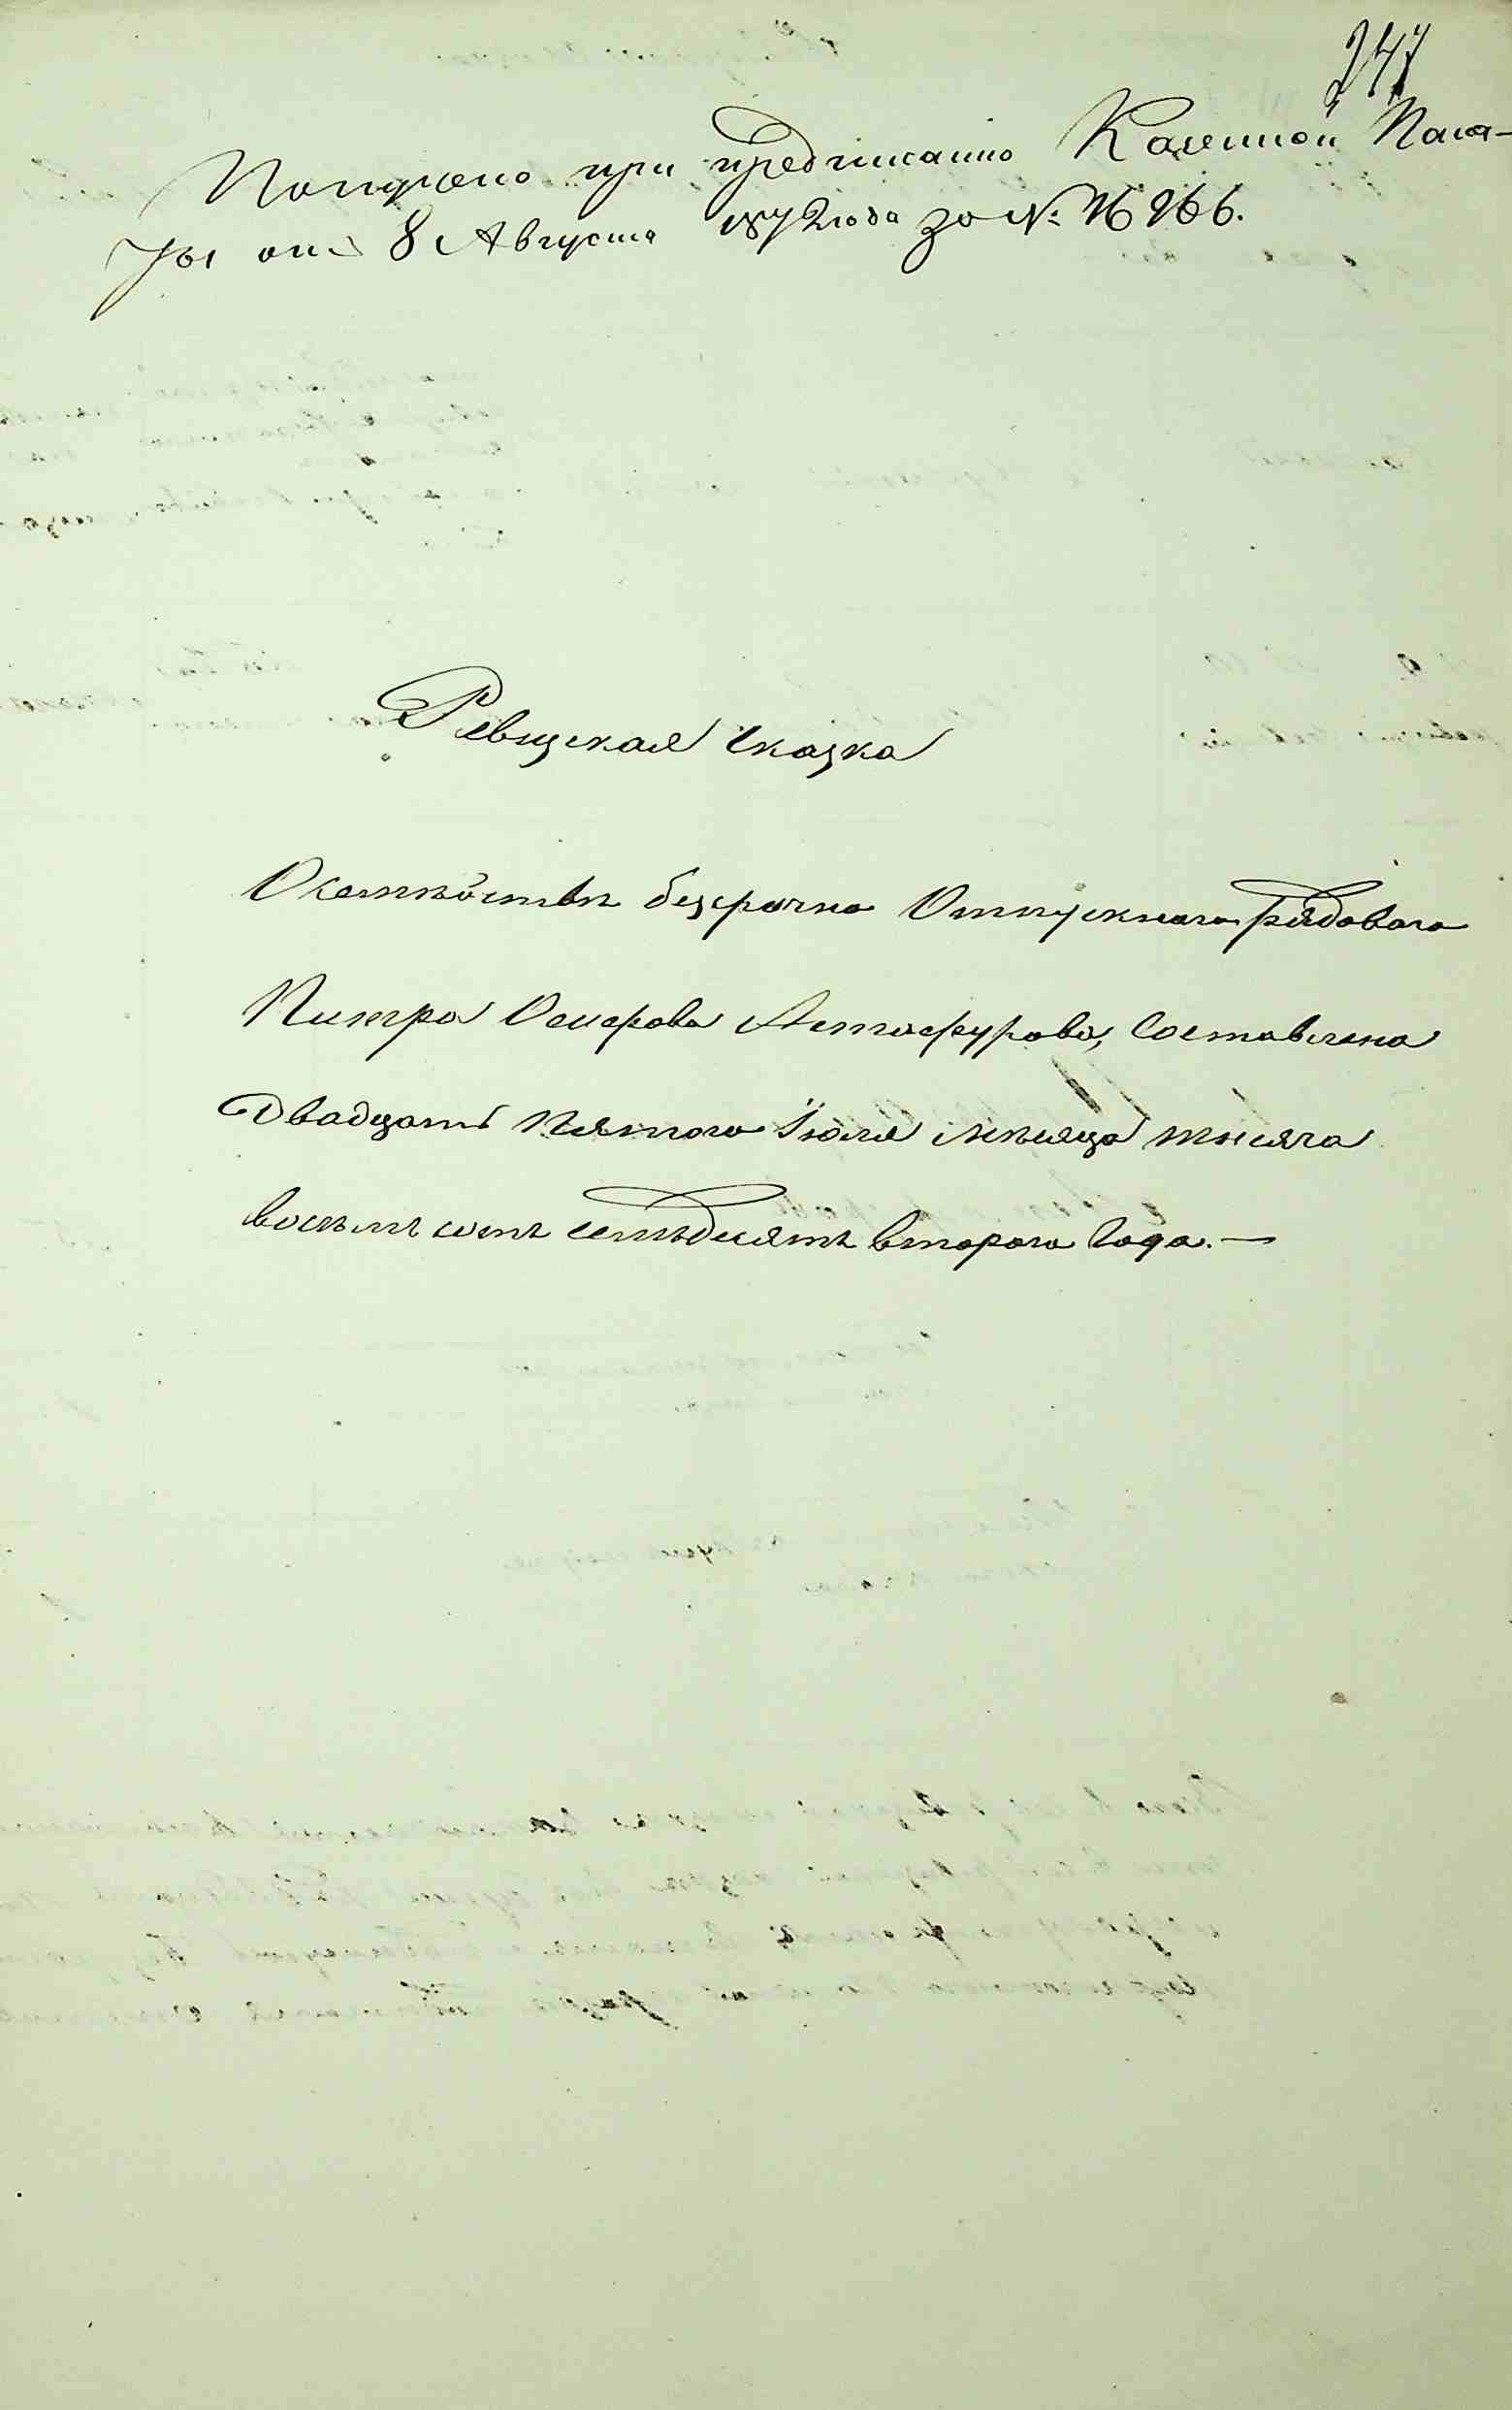 247
Получено при предписанію Казенной Пала-
ты отъ 8 Августа 1872 года за № 16266.
Ревизская сказка
О семѣйствѣ безсрочно Отпускнаго рядоваго
Питра Осифова Астафурова, Составлена
Двадцать Пятого Іюля мѣсяца тысяча
восѣмъ сотъ семѣдисятъ второго Года. —